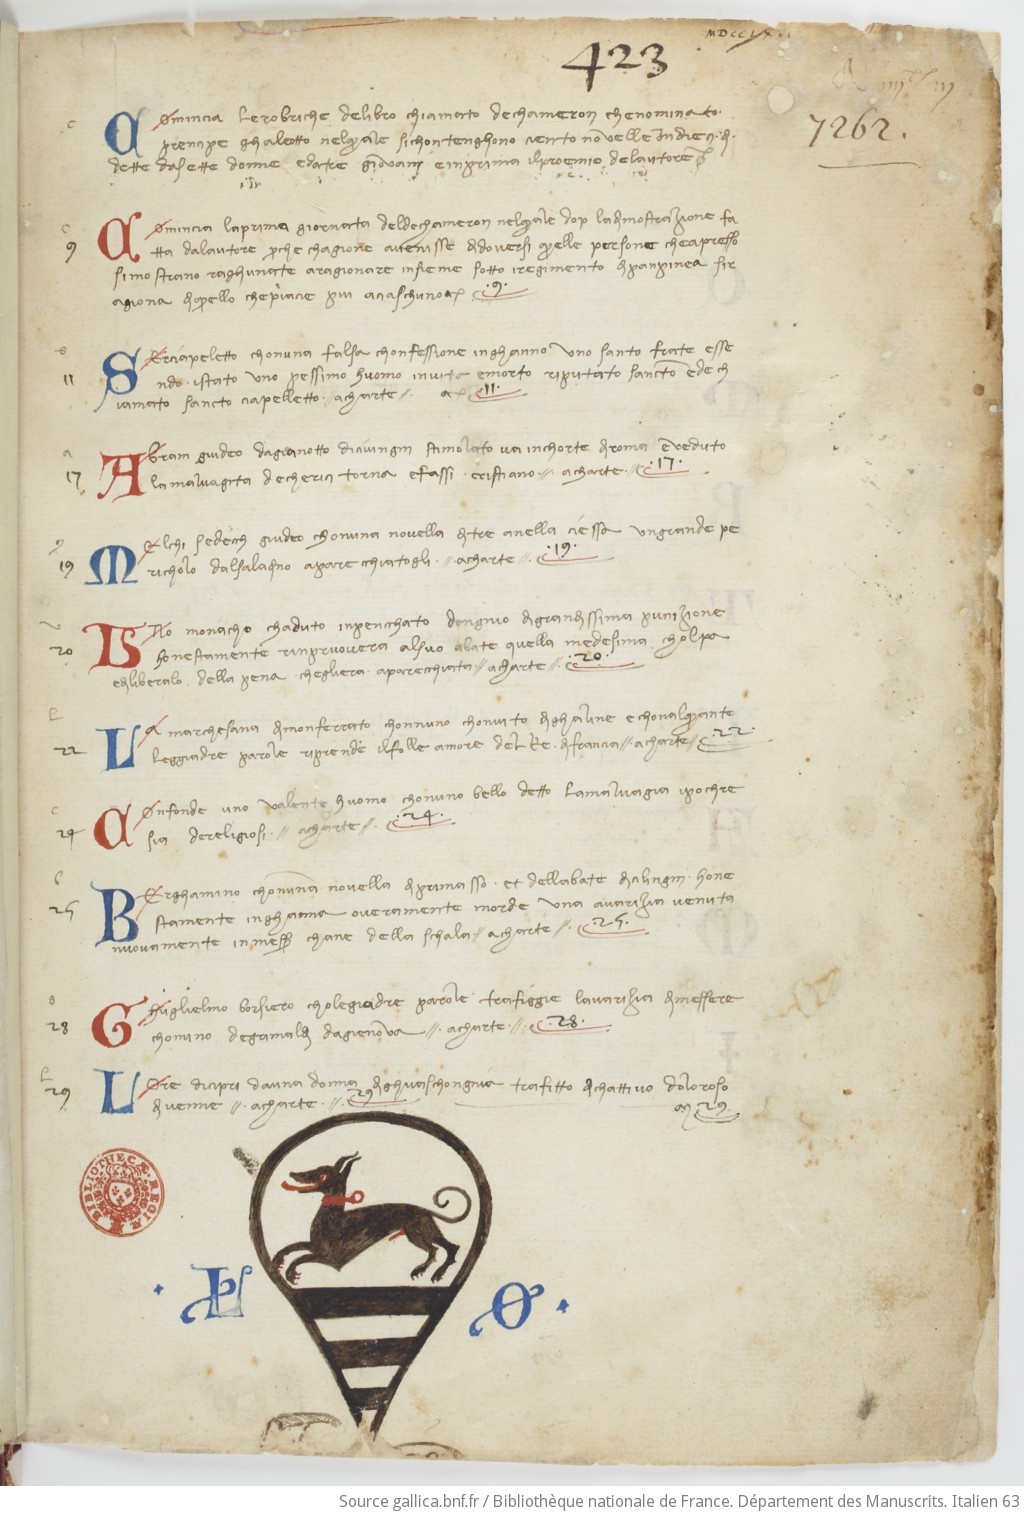 MDCCLX
423
7262.
Comincia Lerobriche delibro chiamato dechameron chenominato
prencipe ghaleotto nelquale sichontenghono ciento novelle Indieci
dette dasette donne edatre giovani einprima ilproemio delautore
Comincia laprima giornata deldechameron nelquale dopo ladimostrazione fa
9 tta dalautore perche chagione avenisse didoversi quelle persone cheapresso
simostrano raghunate aragionare insieme sotto iregimento di panpinea sir
agiona di quello chepiacie piu aciaschuno .9.
Serciapeletto chonuna falsa chonfessione inghanno uno santo frate esse
11 ndo istato uno pessimo huomo invita emorto riputato santo edech
iamato sancto ciapelletto acharte 11.
Abram giudeo dagianotto dicivingni stimolato va inchorte diroma eveduto
17 lamalvagita decherici torna efassi cristiano acharte .17.
Melchisedech giudeo chonuna novella ditre anella ciessa ungrande pe
19 richolo dalsaladino aparecchiatogli acharte .19.
Uno monacho chaduto inpecchato dengnio digrandissima punizione
20 honestamente rinpruovera alsuo abate quella medesima cholpa
ediliberalo della pena chegliera aparecchiata acharte .20.
La marchesana dimonferrato chonuno chonvito dighaline e chonalquante
22 leggiadre parole riprende ilfolle amore delRe difrancia acharte .22.
Confonde uno valente huomo chonuno bello detto Lamalvagia ipochre
24 sia dereligiosi acharte .24.
Berghamino chonuna novella diprimasso et dellabate dicligni hone
25 stamente inghanna overamente morde una avarizia venuta
nuovamente inmesser chane della schala acharte .25.
Ghuglielmo borsiero cholegiadre parole trafiggie lavarizia dimessere
28 ermino degrimaldi dagienova acharte .28.
LOre dicipri dauna donna dighuaschongnia trafitto dichattivo doloroso
29 divenne acharte 29
a 29
BIBLIOTHECÆ REGIÆ
PL O
Source gallica.bnf.fr / Bibliothèque nationale de France. Département des Manuscrits. Italien 63